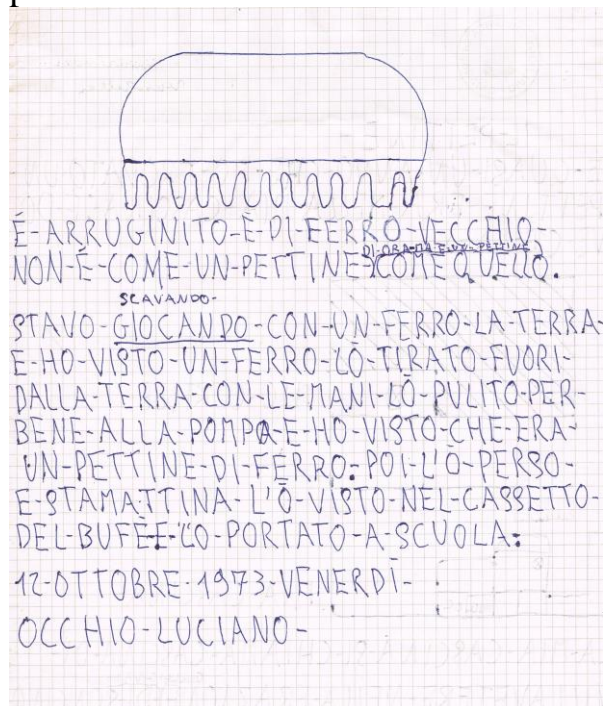 É-ARRUGINITO-È-DI-FERRO-VECCHIO-
DI-ORA-MA-E-UN-PETTINE
NON-É-COME-UN-PETTINE-COME QUELLO.
SCAVANDO-
STAVO-GIOCANDO-CON-UN-FERRO-LA-TERRA-
E-HO-VISTO-UN-FERRO-LÒ-TIRATO-FUORI-
DALLA-TERRA-CON-LE-MANI-LÒ-PULITO-PER-
BENE-ALLA-POMPA-E-HO-VISTO-CHE-ERA-
UN-PETTINE-DI-FERRO.POI-L'Ò-PERSO-
E-STAMATTINA-L'Ò-VISTO-NEL-CASSETTO-
DEL-BUFÈ-E-LÒ-PORTATO-A-SCUOLA.
12-OTTOBRE-1973-VENERDÌ-
OCCHIO-LUCIANO-